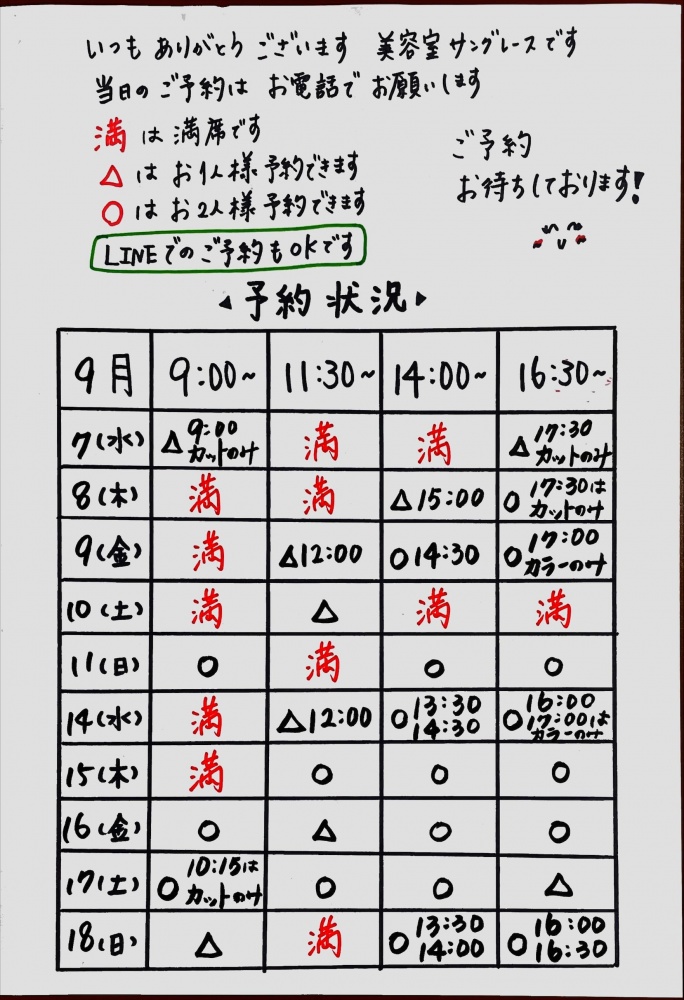 いつも ありがとうございます 美容室サングレースです
当日のご予約は お電話で お願いします
満 は 満席です
△ は お1人様 予約できます
○ は お2人様 予約できます
ご予約
お待ちしております!
LINEでのご予約もOKです
予約 状況
9月 9:00~ 11:30~ 14:00~ 16:30~
7(水) △9:00 カットのみ 満 満 △17:30 カットのみ
8(木) 満 満 △15:00 ○17:30は カットのみ
9(金) 満 △12:00 ○14:30 ○17:00 カラーのみ
10(土) 満 △ 満 満
11(日) ○ 満 ○ ○
14(水) 満 △12:00 ○13:30 14:30 ○16:00 17:00は カラーのみ
15(木) 満 ○ ○ ○
16(金) ○ △ ○ ○
17(土) ○10:15は カットのみ ○ ○ △
18(日) △ 満 ○13:30 14:00 ○16:00 16:30